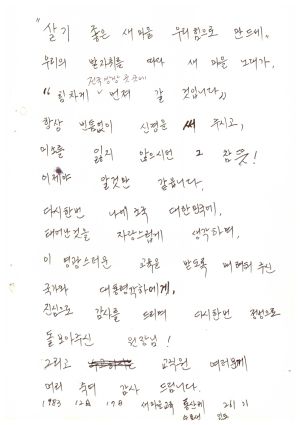 "살기 좋은 새마을 우리힘으로 만드세,"
우리의 발자취를 따라 새 마을 노래가,
전국방방곡곡에
"힘차게 번져 갈 것입니다,"
항상 빈틈없이 신경을 써 주시고,
미소를 잃지 않으시던 그 참뜻!
이제야 알것만 같읍니다.
다시한번 나에 조국 대한민국에,
태어난것을 자랑스럽게 생각하며,
이 영광스러운 교육을 받도록 배려해 주신
국가와 대통령각하에게,
진심으로 감사를 드리며 다시한번 정성으로
돌보아주신 원장님!
그리고 교직원 여러분께
머리 숙여 감사 드립니다.
1983 12월 17일 새마을교육